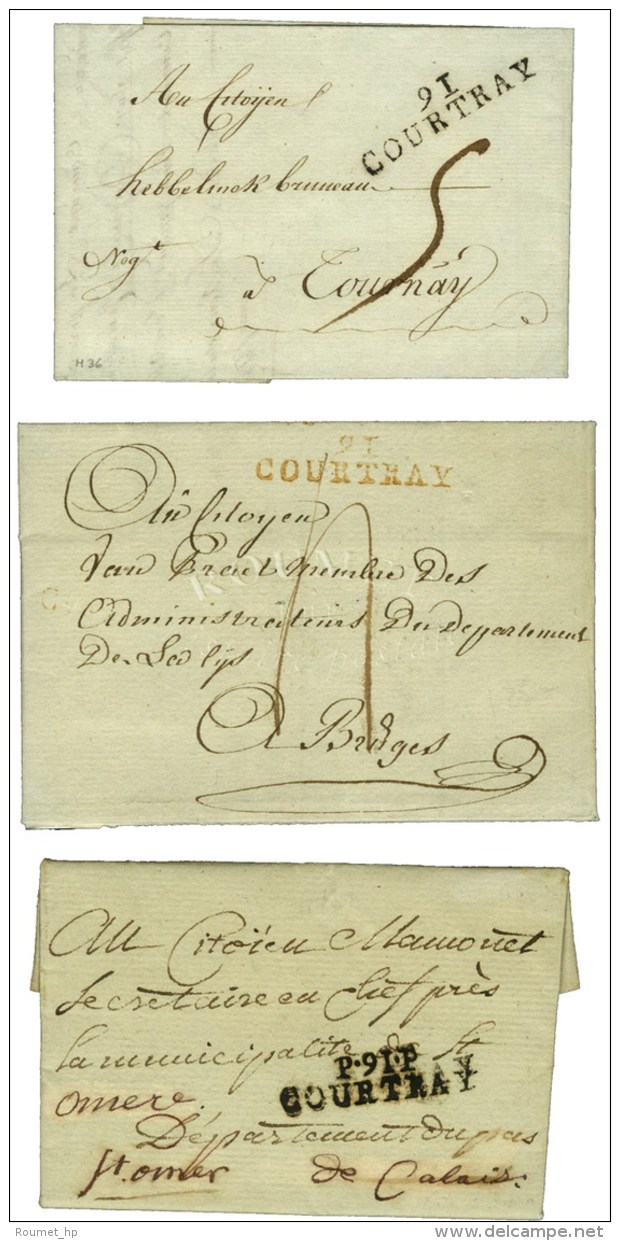 91
COURTRAY
Au Citöÿen
hebbelinck bruneau
5
Nog.t
à Tournaÿ
H36
91
COURTRAY
Au Citoyen
Van Praet Membre Des
Administrateurs Du Departement
De La Lÿs
A Bruges
Au Citöien Mamonet
Secretaire en Chef près
la municipalité de St
P.91.P
COURTRAY
omere.
Département du pas
St. omer de Calais.
Roumet_hp
delcampe.net